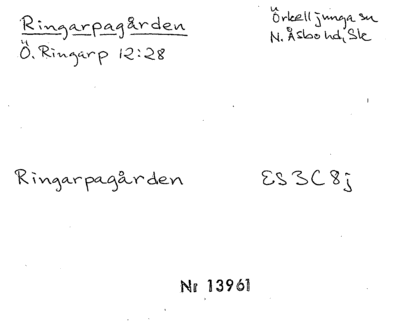 Ringarpagården
Ö. Ringarp 12:28
Örkelljunga sn
N. Åsbo hd, Sk
Ringarpagården
ES 3C 8j
Nr 13961